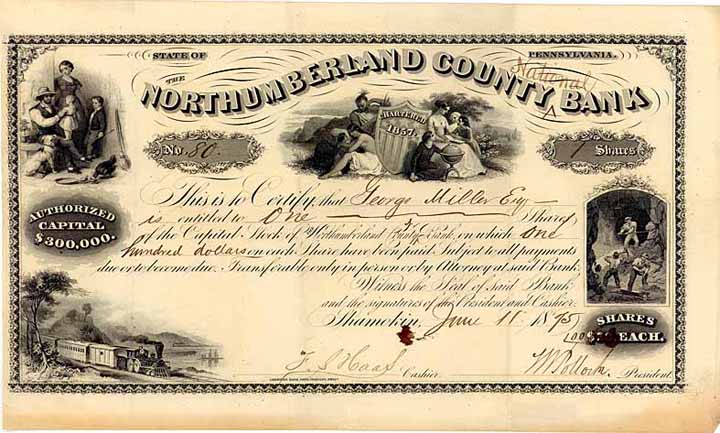 STATE OF PENNSYLVANIA.
THE
NORTHUMBERLAND COUNTY National BANK
CHARTERED
1857.
No. 80
1 Shares
This is to Certify, that George Miller Esq
is entitled to One Shares
of the Capital Stock of Northumberland County Bank, on which One
hundred dollars on each Share have been paid. Subject to all payments
due or to become due. Transferable only in person or by Attorney at said Bank.
Witness the Seal of said Bank
and the signatures of the President and Cashier.
Shamokin, June 11 1875
AUTHORIZED
CAPITAL
$300,000.
SHARES
100 EACH.
F. S. Haas Cashier.
President.